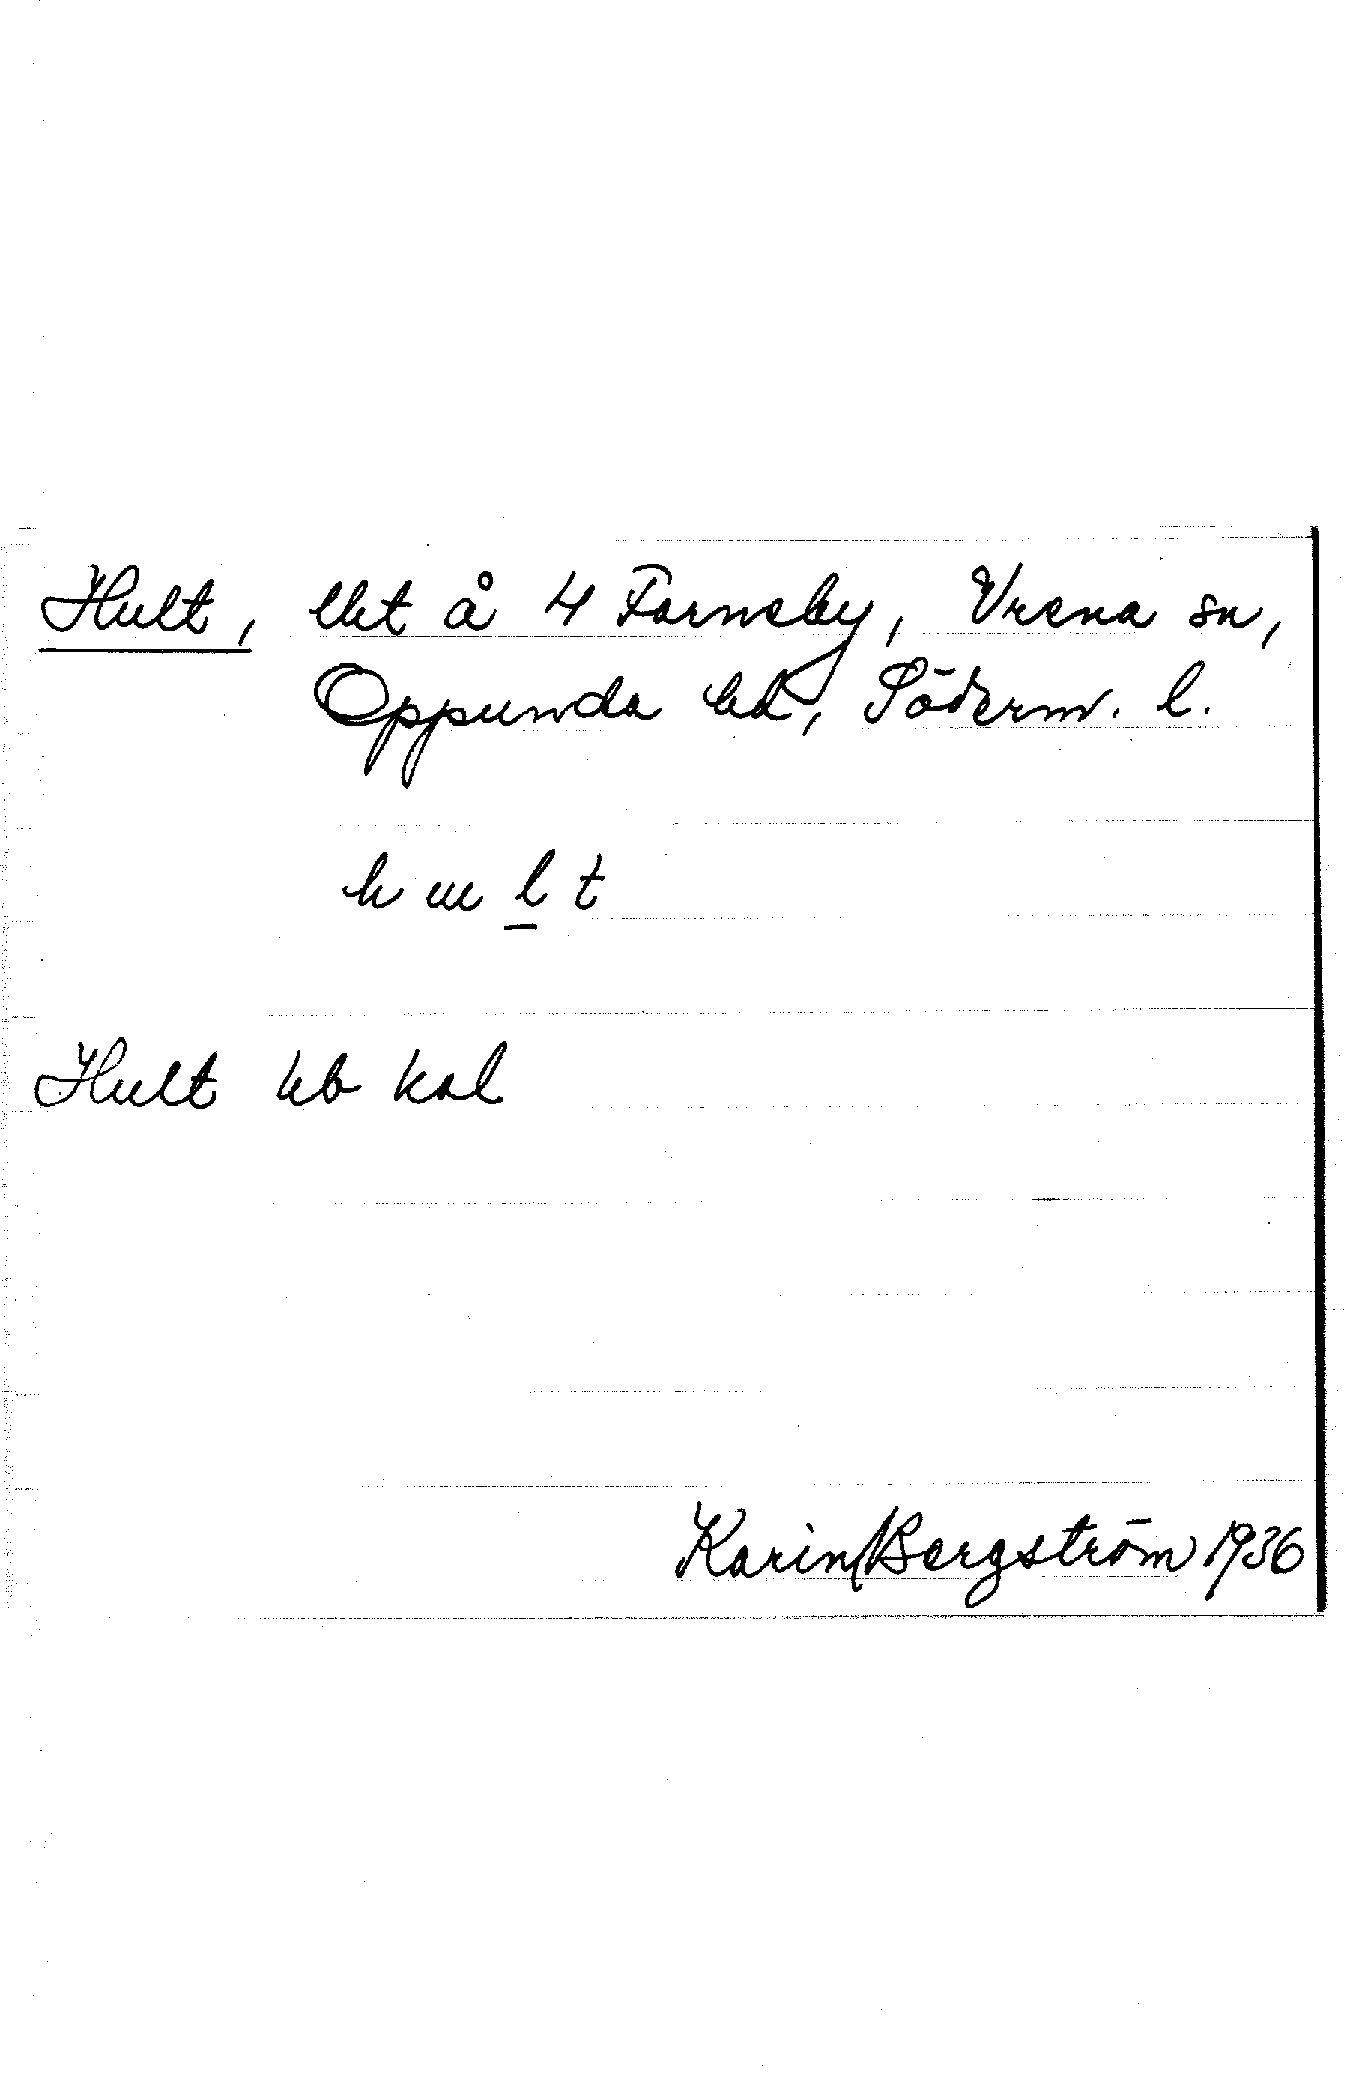 Hult, lht å 4 Farneby, Vrena sn,
Oppunda hd, Söderm. l.
h u l t
Hult kb kal
Karin Bergström 1936